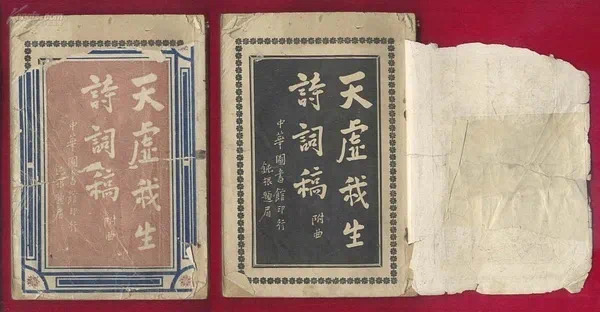 天虛我生
詩詞稿
附曲
中華圖書館印行
天虛我生
詩詞稿
附曲
中華圖書館印行
鈍根題眉